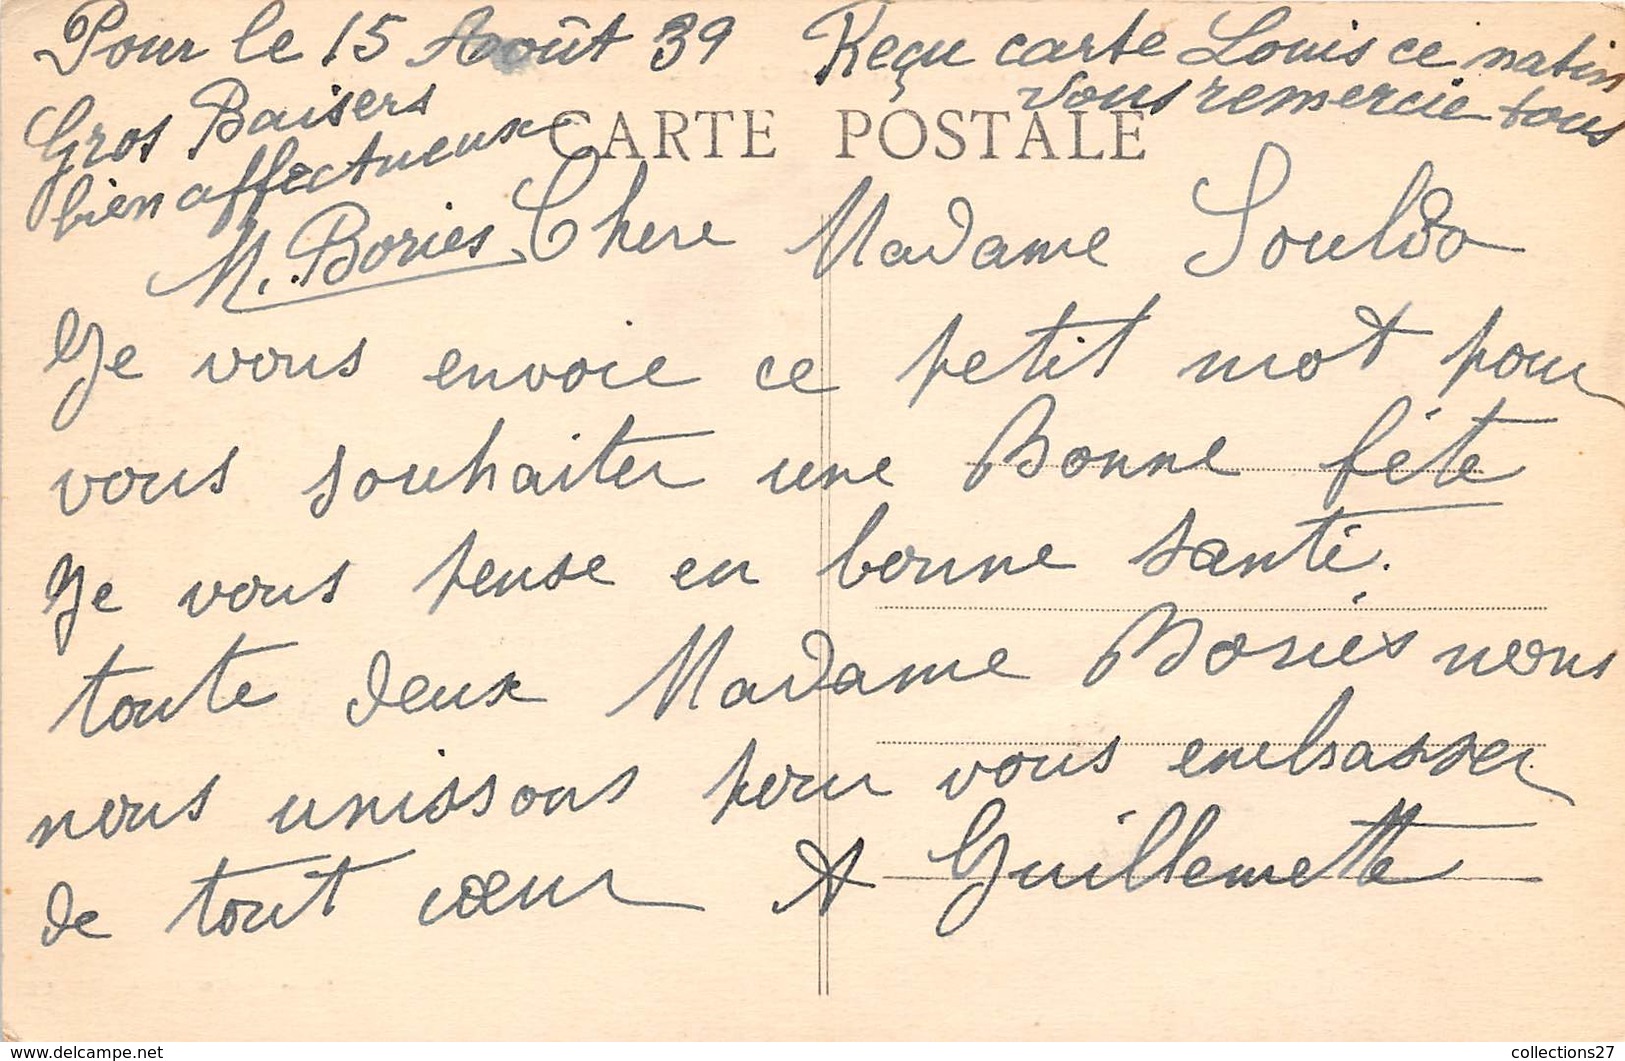 Pour le 15 Août 39 Reçu carte Louis ce matin
vous remercie tous
Gros Baisers
bien affectueux
M. Bories
CARTE POSTALE
Chere Madame Souldo
Je vous envoie ce petit mot pour
vous souhaiter une Bonne fête
Je vous pense en bonne santé.
toute deux Madame Boriés nous
nous unissons pour vous embrasser
de tout cœur A Guillemette
www.delcampe.net
collections27